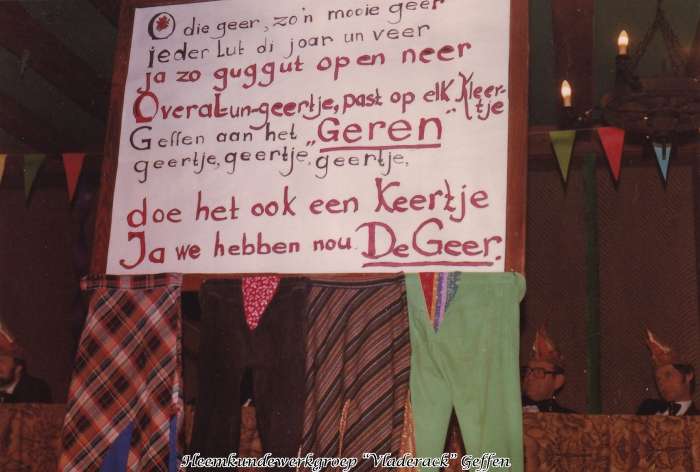 O die geer, zo'n mooie geer
ieder Lut di joar un veer
ja zo guggut op en neer
OveraL un-geertje, past op elk Kleer-
tje
Geffen aan het "Geren"
geertje, geertje, geertje,
doe het ook een Keertje
Ja we hebben nou De Geer.
Heemkundewerkgroep "Vladerack" Geffen